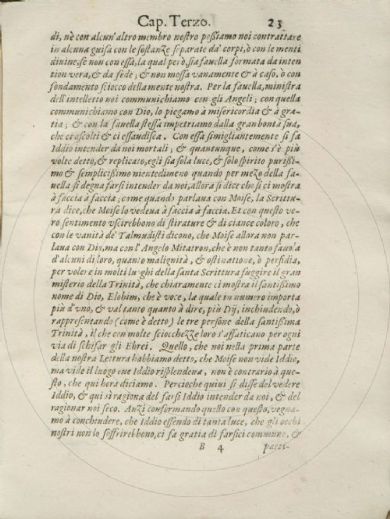 Cap. Terzo. 23
di, nè con alcun'altro membro nostro possiamo noi contrattare
in alcuna guisa con le sostanze separate da' corpi, ò con le menti
diuine, se non con essa, la qual però, sia fauella formata da inten
tion vera, & da fede; & non mossa vanamente & à caso, ò con
fondamento sciocco della mente nostra. Per la fauella, ministra
dell'intelletto noi communichiamo con gli Angeli; con quella
communichiamo con Dio, lo pieghiamo à misericordia & à gra-
tia; & con la fauella stessa impetriamo dalla gran bontà sua,
che ci ascolti & ci essaudisca. Con essa simigliantemente si fa
Iddio intender da noi mortali; & quantunque, come s'è più
volte detto, & replicato, egli sia sola luce, & solo spirito purissi-
mo & semplicissimo nientedimeno quando per mezo della fa-
uella si degna farsi intender da noi, allora si dice che si ci mostra
à faccia à faccia; come quando parlaua con Moise, la Scrittu-
ra dice, che Moise lo vedeua à faccia à faccia. Et con questo ve-
ro sentimento vscirebbono di stirature & di ciance coloro, che
con le vanità de' Talmudisti dicono, che Moise allora non par-
laua con Dio, ma con l'Angelo Mitatron, che è non tanto fauola
d'alcuni di loro, quanto malignità, & ostinatione, ò perfidia,
per voler e in molti luoghi della santa Scrittura fuggire il gran
misterio della Trinità, che chiaramente ci mostra il santissimo
nome di Dio, Elohim, che è voce, la quale in numero importa
più d'vno, & val tanto quanto à dire, più Dij, inchiudendo, ò
rappresentando (come è detto) le tre persone della santissima
Trinità, il che con molte sciocchezze loro s'affaticano per ogni
via di schifar gli Ebrei. Quello, che noi nella prima parte
della nostra Lettura habbiamo detto, che Moise non vide Iddio,
ma vide il luogo oue Iddio risplendeua, non è contrario à que-
sto, che qui hora diciamo. Percioche quiui si disse del vedere
Iddio, & qui si ragiona del farsi Iddio intender da noi, & del
ragionar noi seco. Anzi confermando quello con questo, vegna-
mo à conchiudere, che Iddio essendo di tanta luce, che gli occhi
nostri non lo soffrirebbono, ci fa gratia di farsici commune, &
B 4